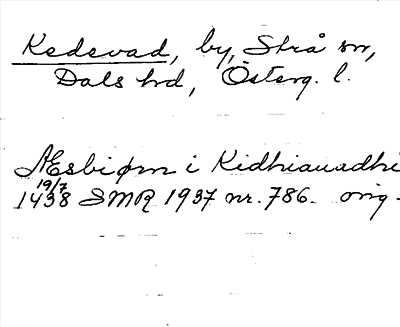 Kedevad, by, Strå sn,
Dals hd, Österg. l.
Æsbiørn i Kidhiauadhi
19/7
1438 SMR 1937 nr. 786. orig.